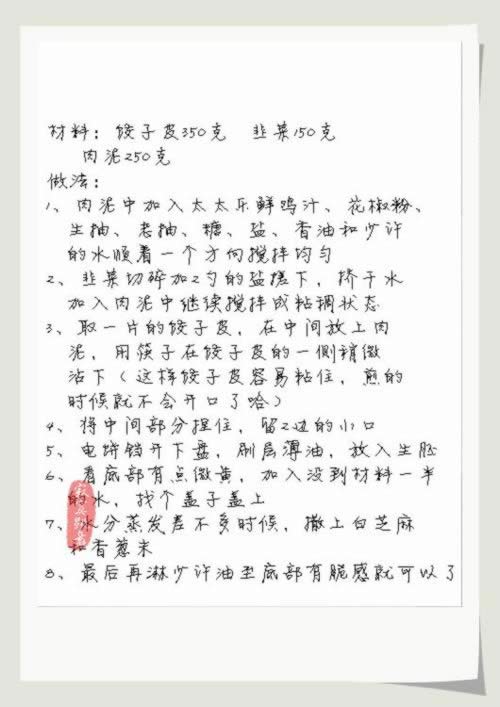 材料：饺子皮350克　韭菜150克
肉泥250克
做法：
1、肉泥中加入太太乐鲜鸡汁、花椒粉、
生抽、老抽、糖、盐、香油和少许
的水顺着一个方向搅拌均匀
2、韭菜切碎加2勺的盐搓下，挤干水
加入肉泥中继续搅拌成粘调状态
3、取一片的饺子皮，在中间放上肉
泥，用筷子在饺子皮的一侧稍微
沾下（这样饺子皮容易粘住，煎的
时候就不会开口了哈）
4、将中间部分捏住，留2边的小口
5、电饼铛开下盘，刷层薄油，放入生胚
6、看底部有点微黄，加入没到材料一半
的水，找个盖子盖上
7、水分蒸发差不多时候，撒上白芝麻
和香葱末
8、最后再淋少许油至底部有脆感就可以了